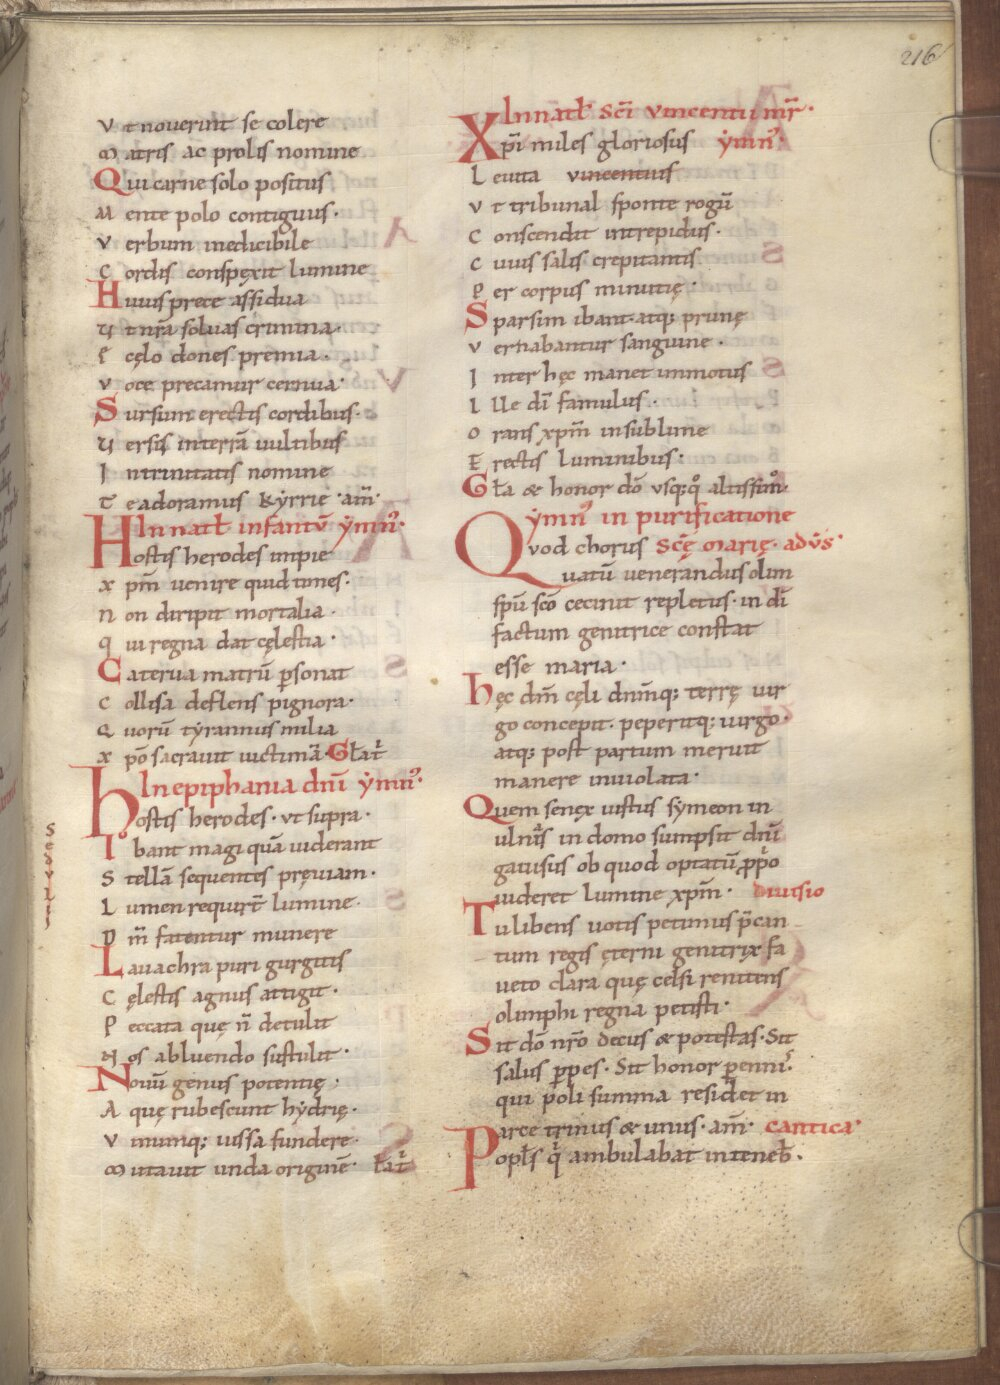 216
Vt nouerint se colere
Matris ac prolis nomine
Qui carne solo positus
Mente polo contiguus·
Verbum inedicibile
Cordis conspęxit lumine
Huius prece assidua
Vt nr̄a soluas crimina·
E cęlo dones premia·
Voce precamur cernua·
Sursum erectis cordibus·
Versis interrā uultibus
In trinitatis nomine
Te adoramus kyrrie· am̄·
In nat̄ł infantū ẏmn᷒·
Hostis herodes impie
xpm̄ uenire quid times·
Non diripit mortalia·
qui regna dat cęlestia·
Caterua matrū ꝑsonat
Collisa deflens pignora·
Quorū tẏrannus milia
xpō sacrauit uictimā· Gła t̄
In epiphania dnī ẏmn᷒·
hostis herodes· vt supra·
Ibant magi quā uiderant
Stellā sequentes pręuiam·
Lumen requirt̄ lumine·
Dm̄ fatentur munere
Lauachra puri gurgitis
Cęlestis agnus attigit·
Peccata quę n̄ detulit
Nos abluendo sustulit·
Nouū genus potentię;
Aquę rubescunt hẏdrię·
Vinumq; iussa fundere·
Mutauit unda originē· Gła t̄
In nat̄ł Scī vincentii mr̄·
Xpī miles gloriosus ẏmn᷒·
Leuita vincentius
Vt tribunal sponte rogū
Conscendit intrepidus·
Cuius salis crepitantis
Per corpus minutię·
Sparsim ibant· atq; prunę
Vernabantur sanguine·
Inter hęc manet immotus
Ille dī famulus·
Orans xpm̄ in sublime
Erectis luminibus·
Gła & honor dō vsq;q̊ altissim᷒·
ẏmn᷒ in purificatione
Quod chorus Scę Marię· ad vs̄·
uatū uenerandus olim
spū scō cecinit repletus· in dī
factum genitrice constat
esse maria·
hęc dm̄ cęli dnm̄q; terrę uir
go concepit· peperitq; uirgo·
atq; post partum meruit
manere inuiolata·
Quem senęx iustus sẏmeon in
ulnis in domo sumpsit dnī
gauisus ob quod optatū ꝓpͥo
uideret lumine xpm̄· diuisio
Tu libens uotis petimus p̄can
tum regis ęterni genitrix fa
ueto clara quę celsi renitens
olimphi regna petisti·
Sit dō nr̄o decus & potestas· Sit
salus ꝑpes· Sit honor ꝑennis·
qui poli summa residet in
Parce trinus & unus· am̄· cantica·
Popłs q̇ ambulabat in teneb̄·